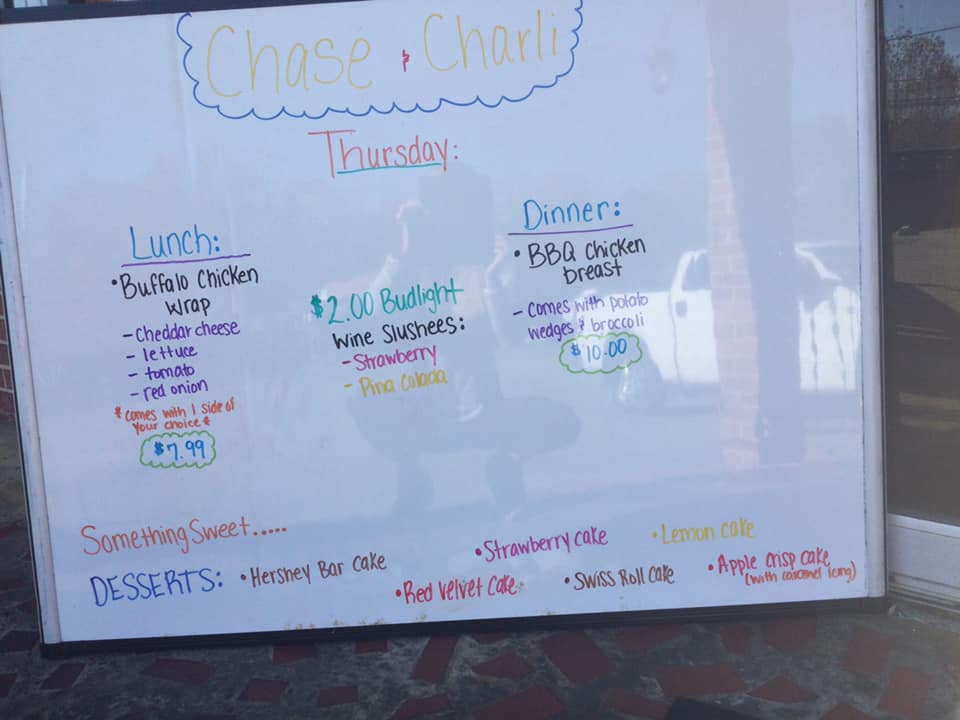 Chase & Charli
Thursday:
Lunch:
•Buffalo Chicken
wrap
- Cheddar cheese
- lettuce
- tomato
- red onion
*Comes with 1 side of
your choice*
$7.99
$2.00 Budlight
Wine Slushees:
- Strawberry
- Pina Colada
Dinner:
•BBQ Chicken
breast
- Comes with potato
wedges & broccoli
$10.00
Something Sweet.....
DESSERTS: •Hershey Bar cake
•Strawberry cake
•Lemon cake
•Red Velvet Cake
•Swiss Roll Cake
•Apple crisp cake
(with caramel Icing)